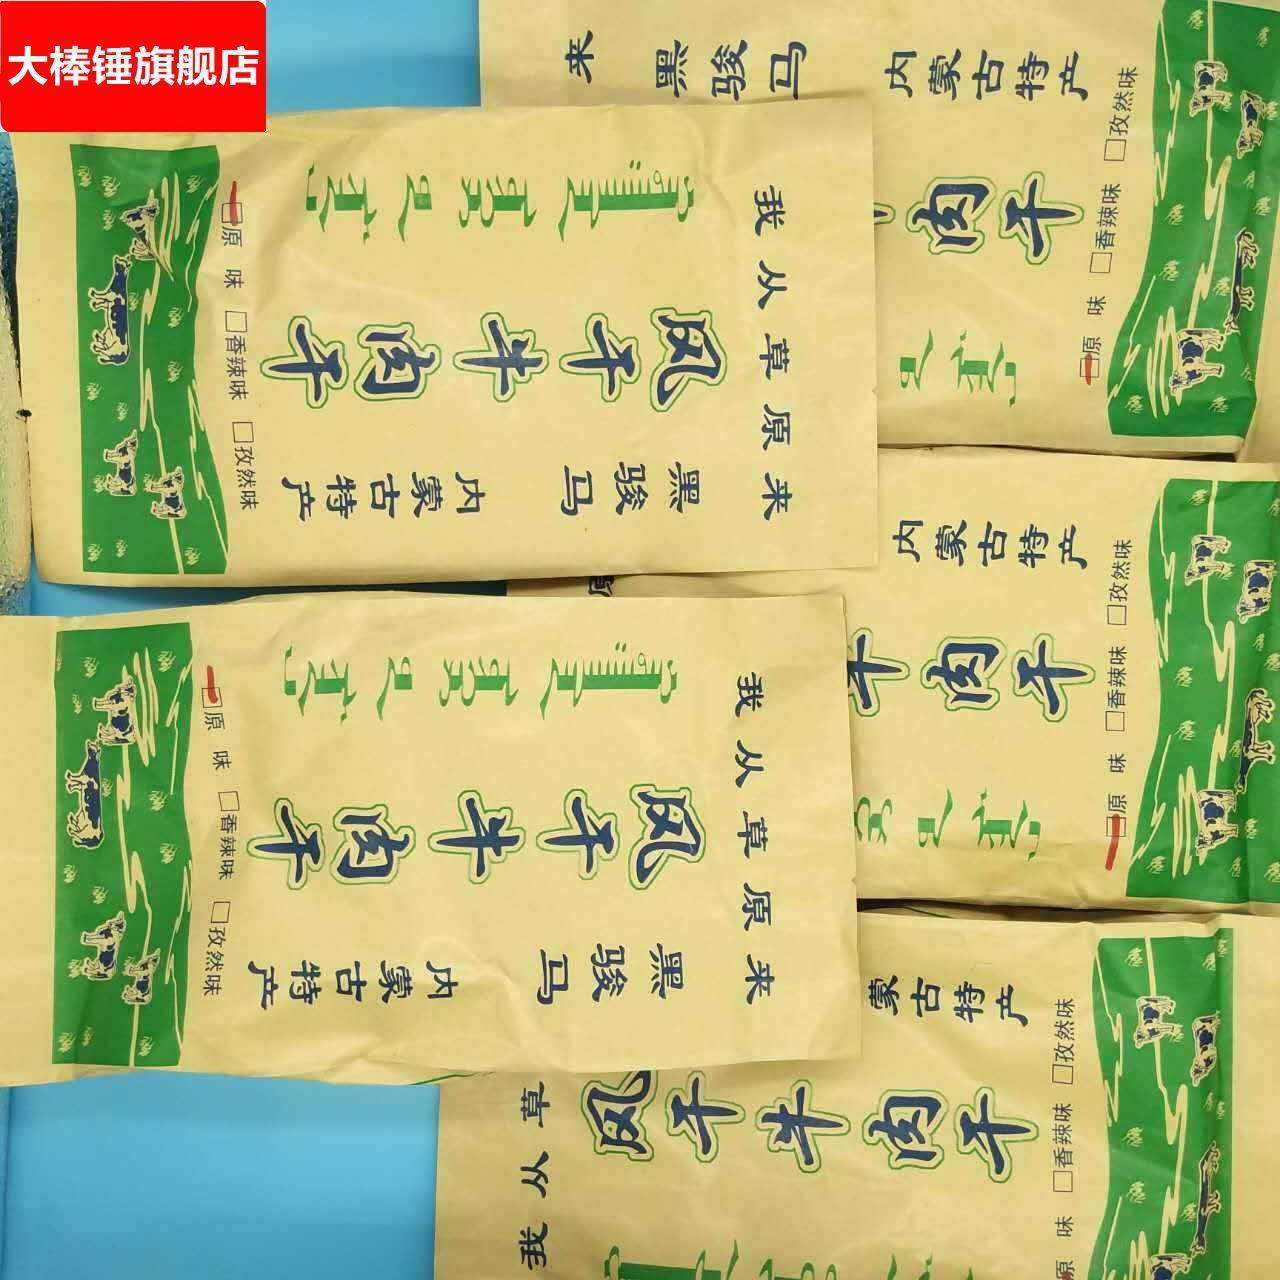 大棒锤旗舰店
我从草原来
黑骏马
内蒙古特产
风干牛肉干
□原 味 □香辣味 □孜然味
我从草原来
黑骏马
内蒙古特产
风干牛肉干
□原 味 □香辣味 □孜然味
来
黑骏马
内蒙古特产
肉干
□原 味 □香辣味 □孜然味
内蒙古特产
牛肉干
□原 味 □香辣味 □孜然味
我从草
蒙古特产
风干牛肉干
原 味 □香辣味 □孜然味